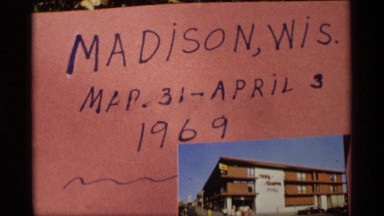 MADISON, WIS.
MAR. 31 - APRIL 3
1969